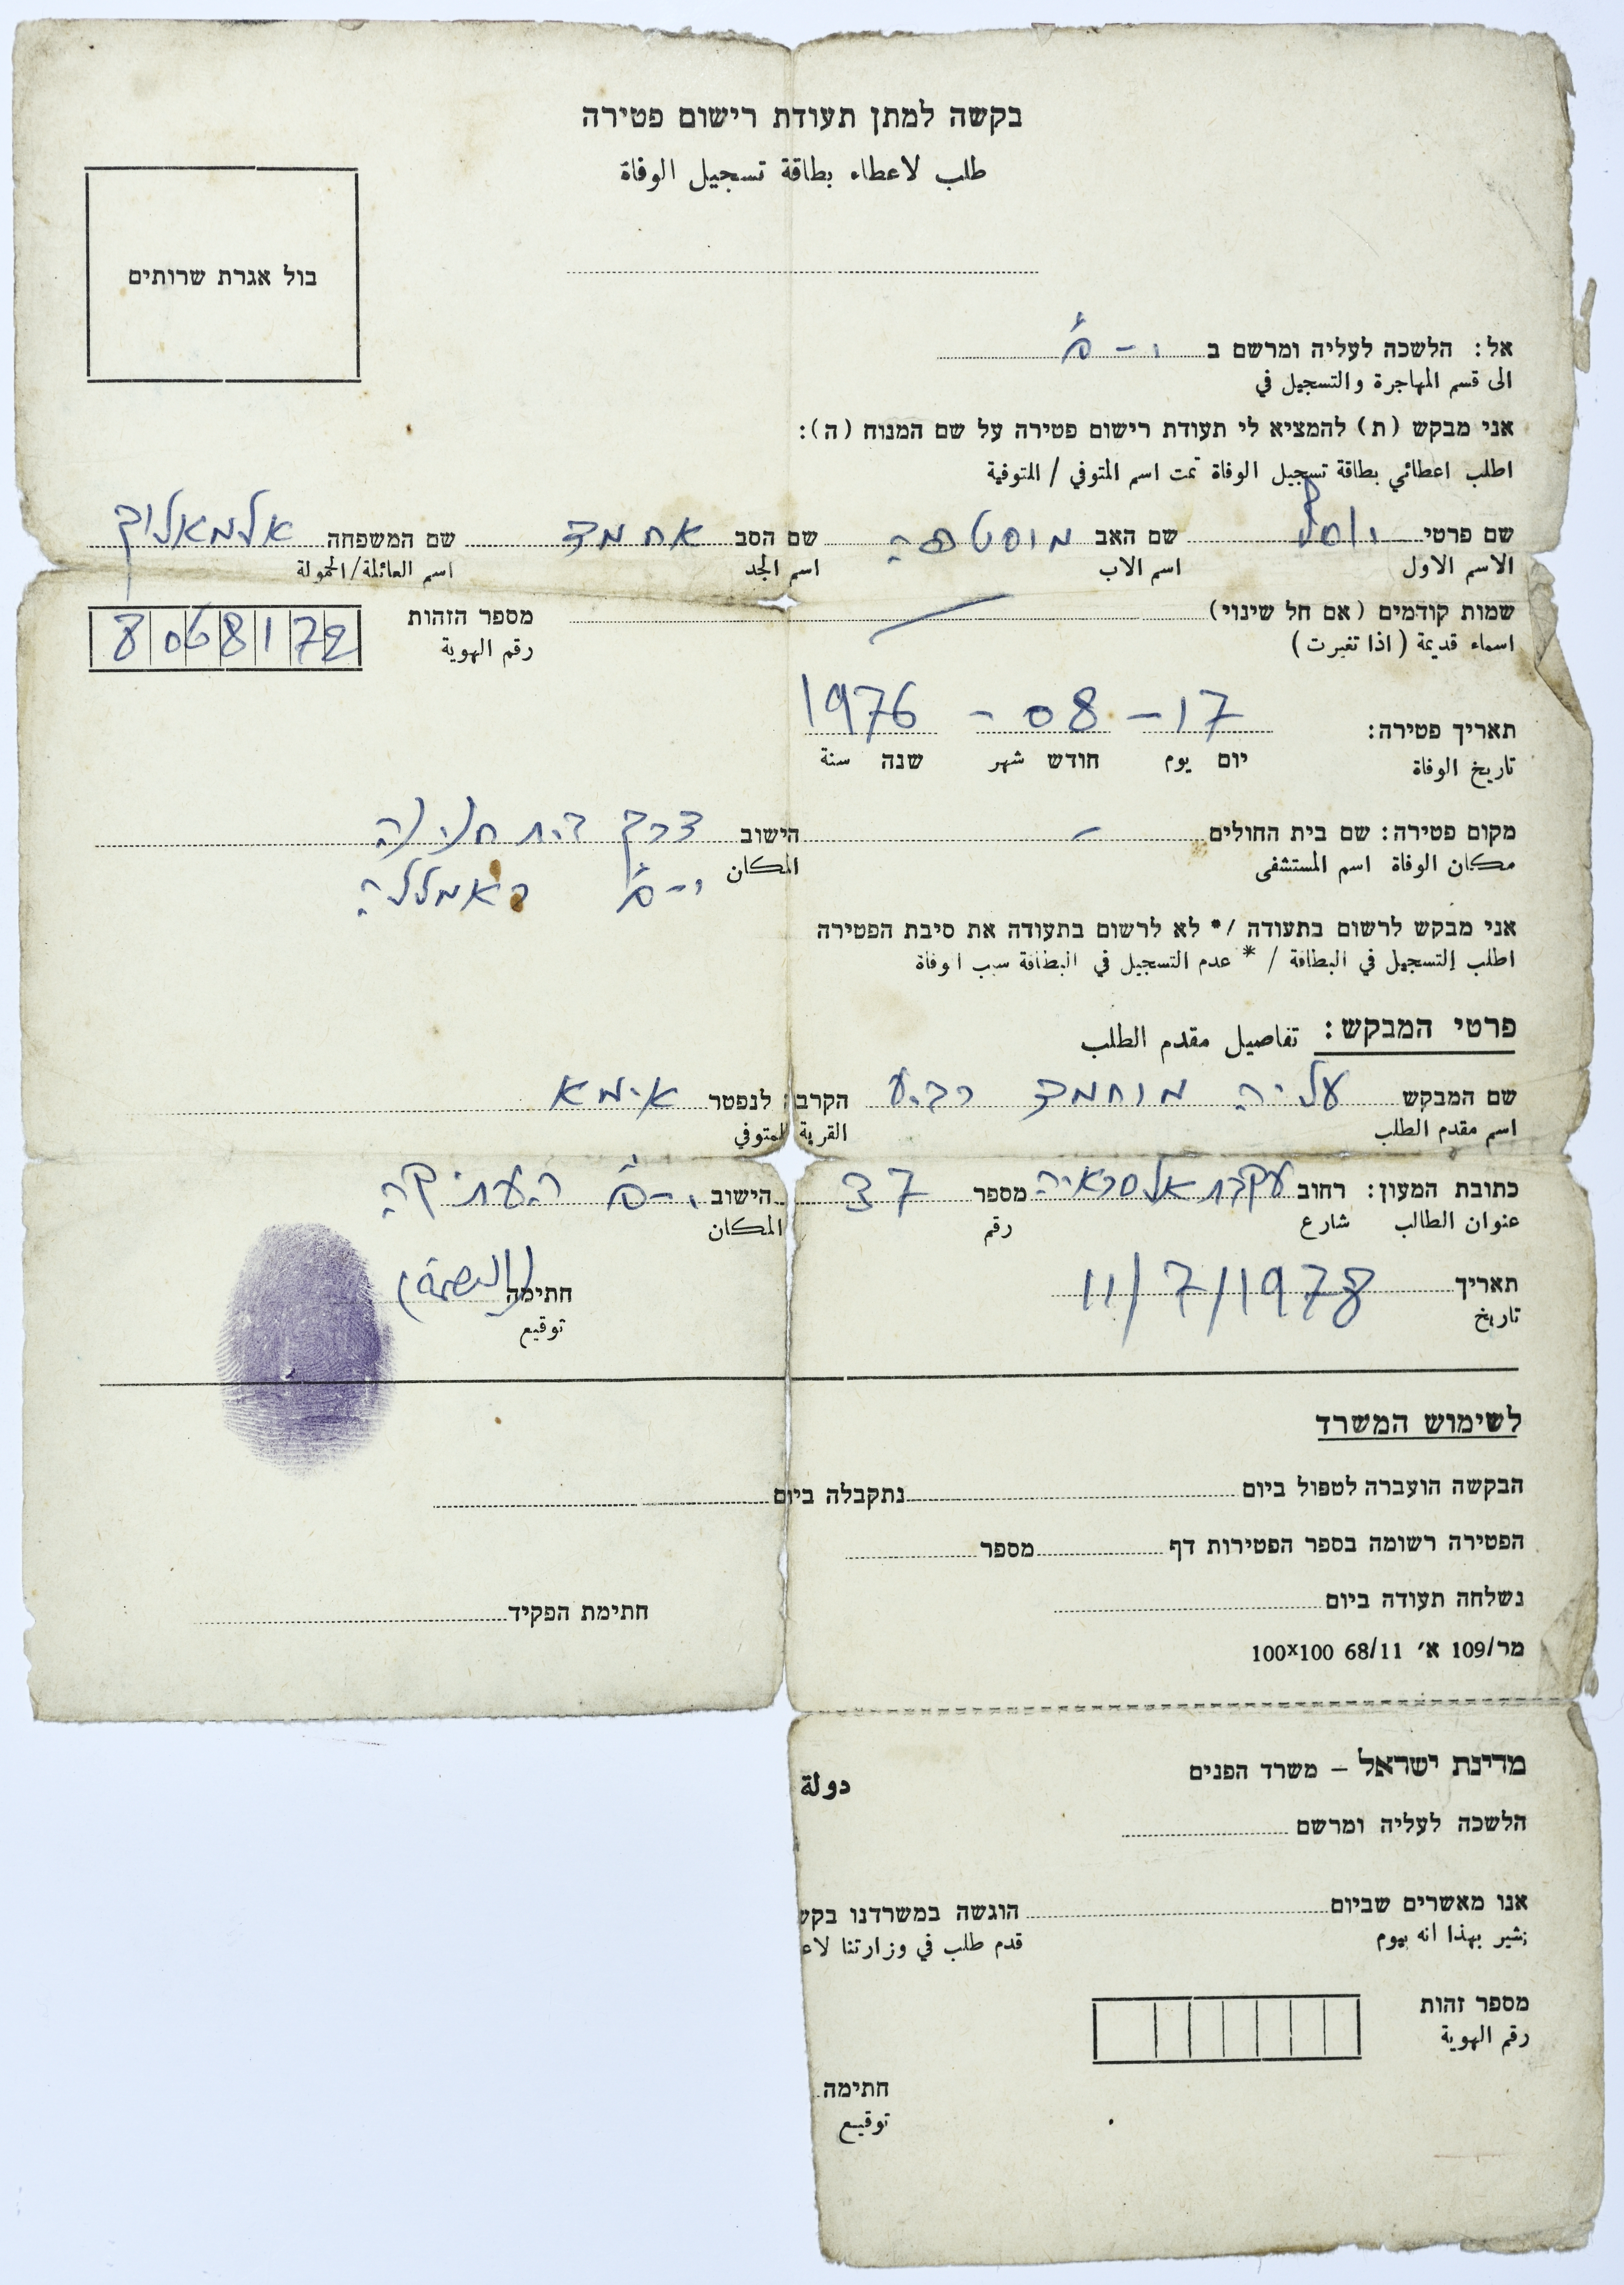 בקשה למתן תעודת רישום פטירה
طلب لاعطاء بطاقة تسجيل الوفاة
בול אגרת שרותים
אל: הלשכה לעליה ומרשם ב י-ם
الى قسم المهاجرة والتسجيل في
אני מבקש (ת) להמציא לי תעודת רישום פטירה על שם המנוח (ה):
اطلب اعطائي بطاقة تسجيل الوفاة تمت اسم المتوفي / المتوفية
שם פרטי שם האב מוסטפה שם הסב אחמד שם המשפחה אלמאלוך
الاسم الاول اسم الاب اسم الجد اسم العائلة/الحمولة
שמות קודמים (אם חל שינוי) מספר הזהות 8068172
اسماء قديمة (اذا تغيرت) رقم الهوية
תאריך פטירה: 17 - 08 - 1976
تاريخ الوفاة יום يوم חודש شهر שנה سنة
מקום פטירה: שם בית החולים - הישוב דרך בית חנינה
مكان الوفاة اسم المستشفى المكان י-ם ראמללה
אני מבקש לרשום בתעודה /* לא לרשום בתעודה את סיבת הפטירה
اطلب التسجيل في البطاقة / * عدم التسجيل في البطاقة سبب الوفاة
פרטי המבקש: تفاصيل مقدم الطلب
שם המבקש עליה מוחמד רביע הקרבה לנפטר אימא
اسم مقدم الطلب القربة للمتوفي
כתובת המעון: רחוב עקבת אלסראיה מספר 37 הישוב י-ם העתיקה
عنوان الطالب شارع رقم المكان
תאריך 11/7/1978 חתימה (البصمة)
تاريخ توقيع
לשימוש המשרד
הבקשה הועברה לטפול ביום נתקבלה ביום
הפטירה רשומה בספר הפטירות דף מספר
נשלחה תעודה ביום חתימת הפקיד
מר/109 א׳ 68/11 100x100
מדינת ישראל – משרד הפנים دولة
הלשכה לעליה ומרשם
אנו מאשרים שביום הוגשה במשרדנו בקש
نشير بهذا انه بيوم قدم طلب في وزارتنا لاع
מספר זהות
رقم الهوية
חתימה
توقيع